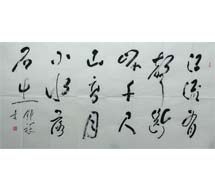 江流有
声断
岸千尺
山高月
小水落
石出